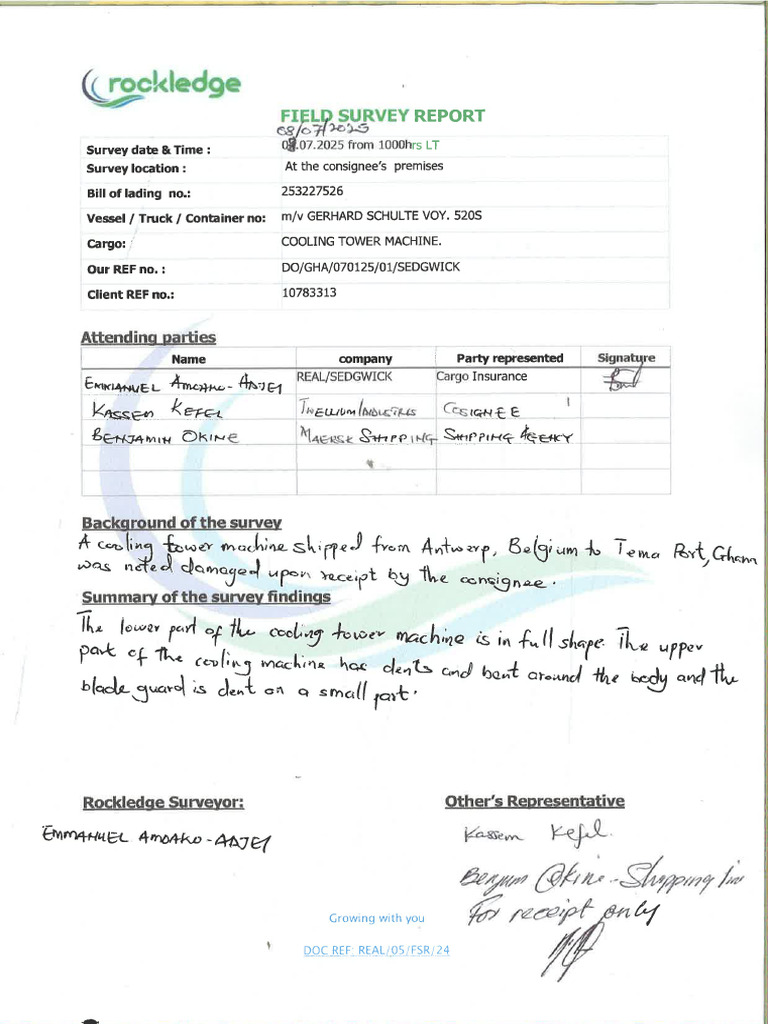 rockledge
FIELD SURVEY REPORT
08/07/2025
Survey date & Time : 08.07.2025 from 1000hrs LT
Survey location : At the consignee's premises
Bill of lading no.: 253227526
Vessel / Truck / Container no: m/v GERHARD SCHULTE VOY. 520S
Cargo: COOLING TOWER MACHINE.
Our REF no. : DO/GHA/070125/01/SEDGWICK
Client REF no.: 10783313
Attending parties
Name company Party represented Signature
EMMANUEL AMOAKO-ADJEI REAL/SEDGWICK Cargo Insurance
KASSEM KEFEL COSIGNEE
BENJAMIN OKINE MAERSK SHIPPING SHIPPING AGENCY
Background of the survey
A cooling tower machine shipped from Antwerp, Belgium to Tema Port, Ghana
was noted damaged upon receipt by the consignee.
Summary of the survey findings
The lower part of the cooling tower machine is in full shape. The upper
part of the cooling machine has dents and bent around the body and the
blade guard is dent on a small part.
Rockledge Surveyor: Other's Representative
EMMANUEL AMOAKO-ADJEI Kassem Kefel.
Okine - Shipping line
For receipt only
Growing with you
DOC REF: REAL/05/FSR/24